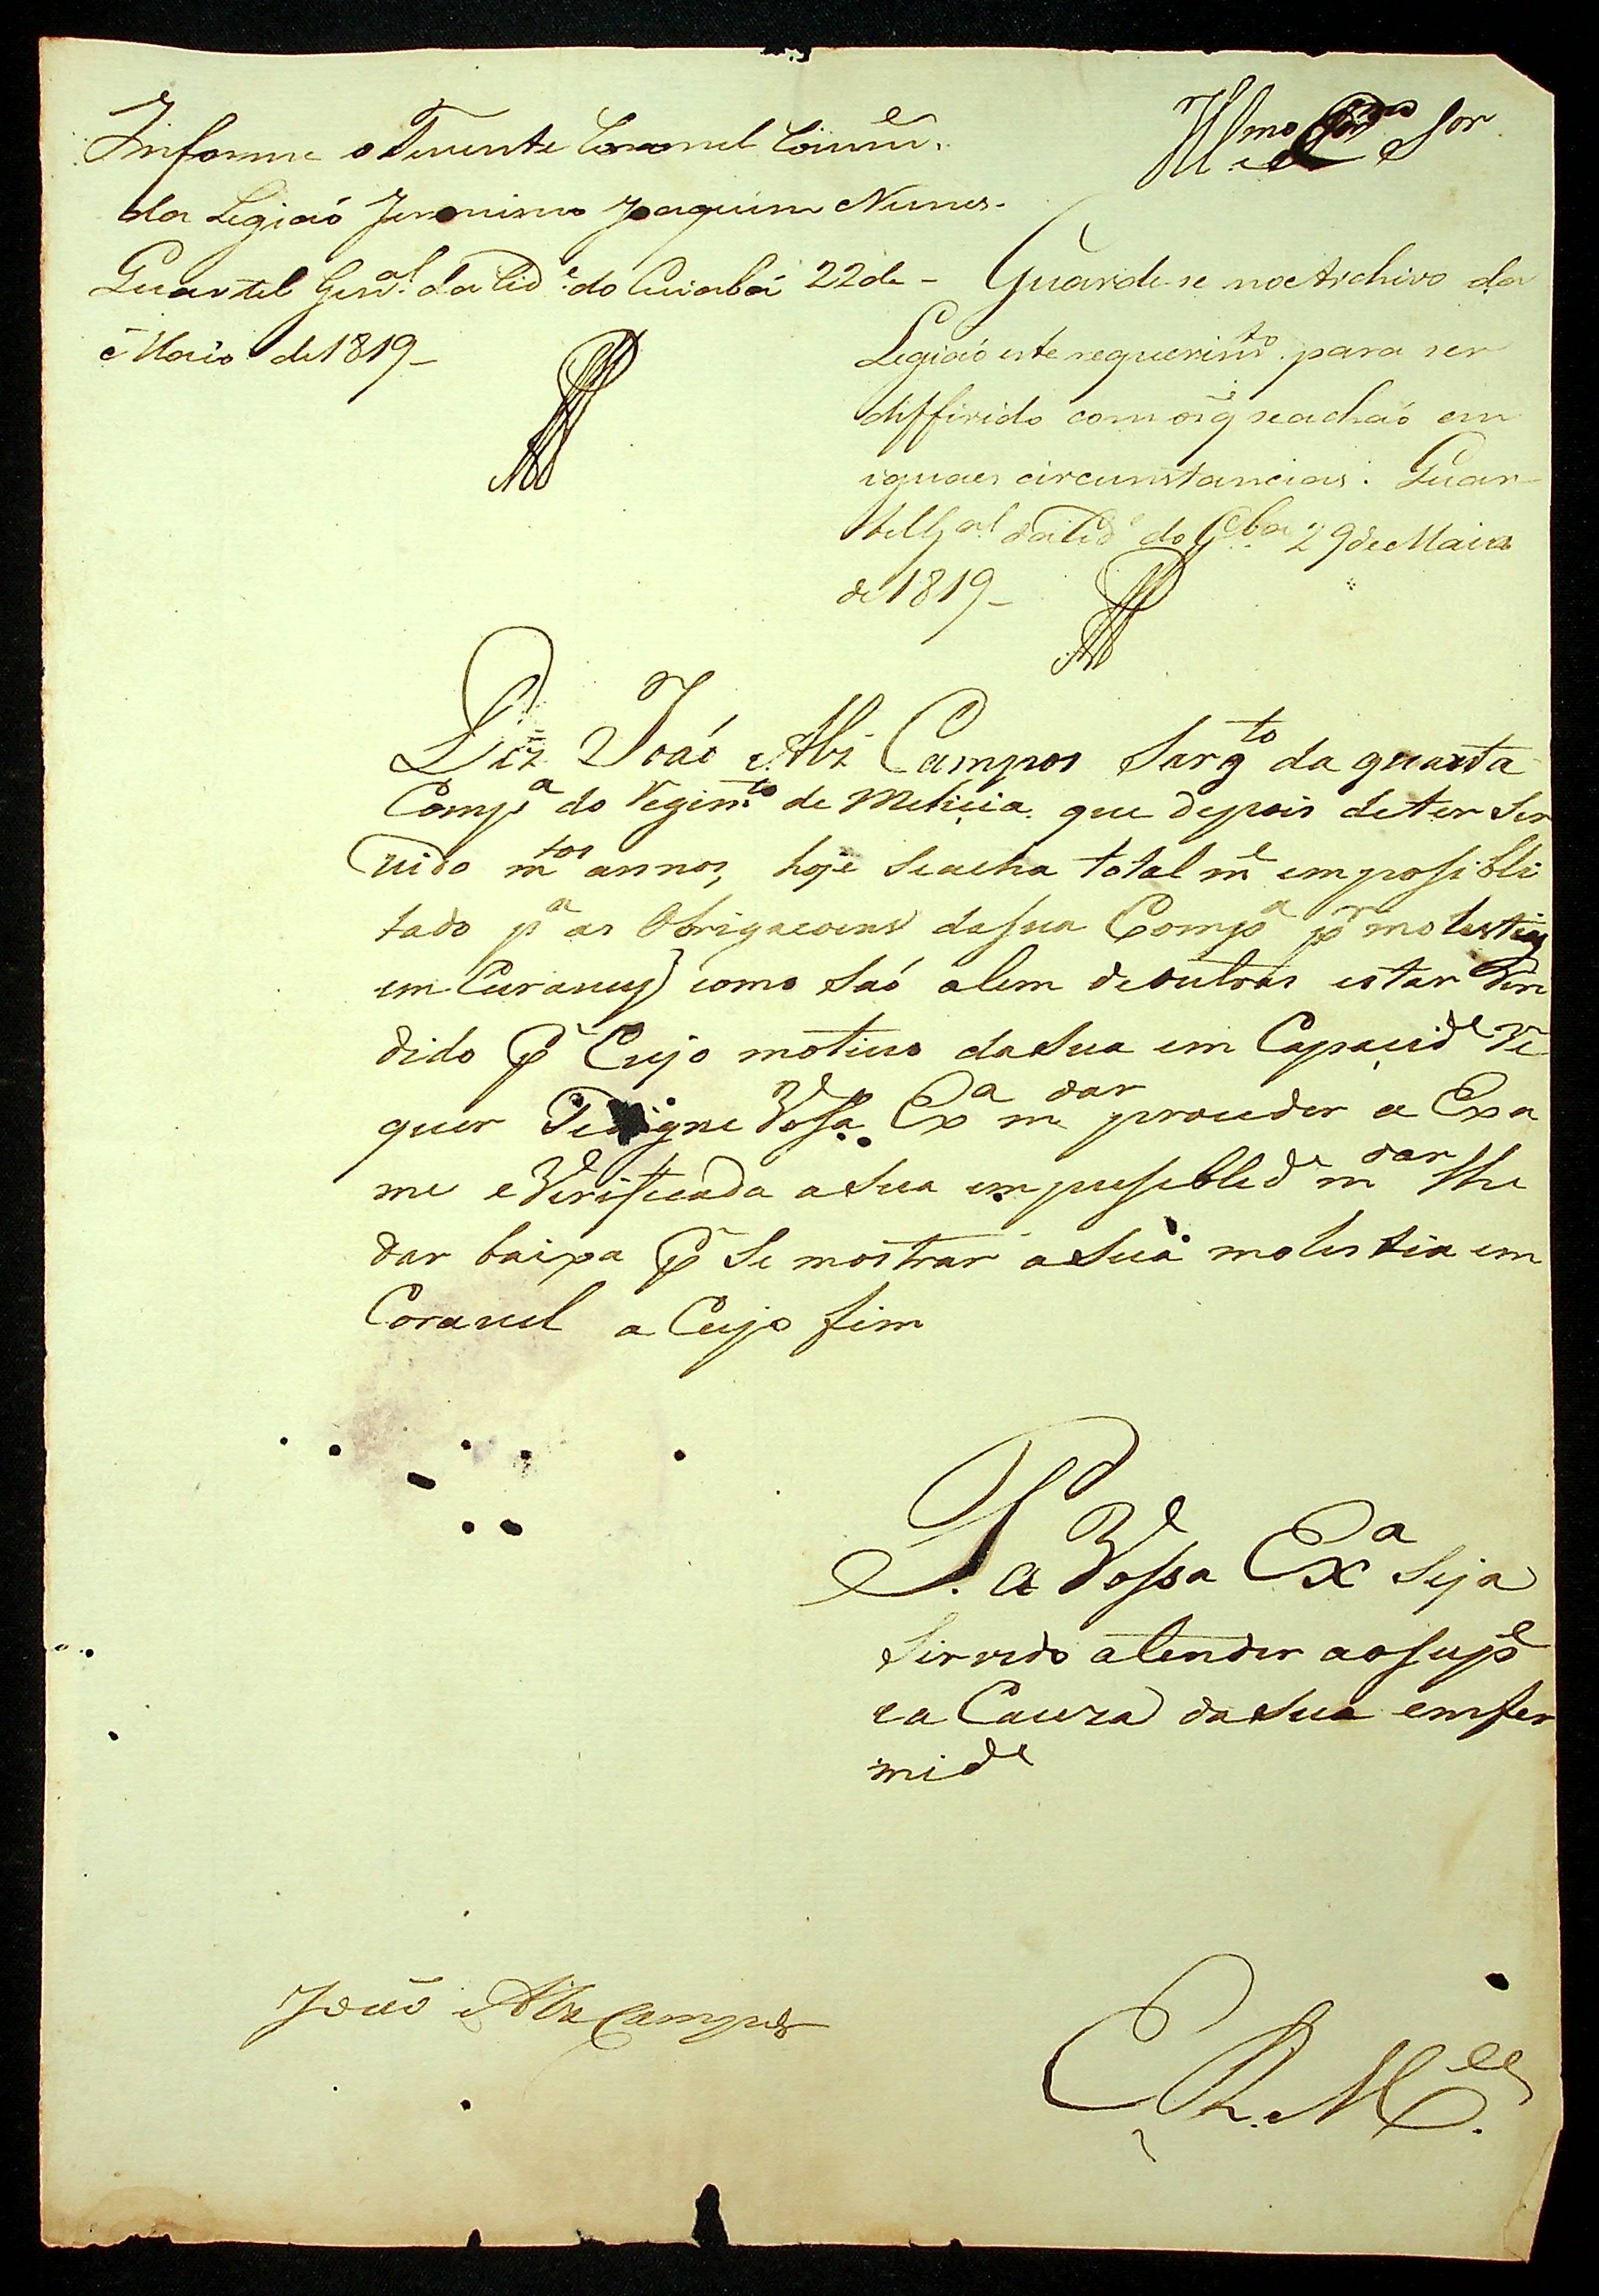 Informe o Tenente Coronel Com.e
da Legiaó Jeronimo Joaquim Nunes.
Quartel Gen.al da Cid.e do Cuiabá 22 de -
Maio de 1819 -
Ill.mo Snor
Guarde-se no Archivo da
Legiaó este requerim.to para ser
differido com os q̃ se achaó em
iguaes circunstancias. Quar-
tel G.al da Cid.e do C.bá 29 de Maio
de 1819 -
Diz Joaó Alz Campos Sarg.to da quarta
Comp.a do Regim.to de Melicia que depois de ter Ser
vido m.tos annos, hoje Se acha total m.e emposibli
tado p.a as Obrigacoens da Sua Comp.a p.r molestias
em Curaveis como Saó alem de outras estar Ren
dido p.r Cujo motivo da Sua em Capacid.e Re
quer Digne Vossa Ex.a m.dar proceder a Exa
me e Verificada a Sua empusebled.e m.dar lhe
dar baixa p.r Se mostrar a Sua molestia em
Coravel a Cujo fim
P. a Vossa Ex.a Seja
Servido atender ao Sup.e
e a Cauza da Sua emfer
mid.e
João Alz Campos
E R. M.ce